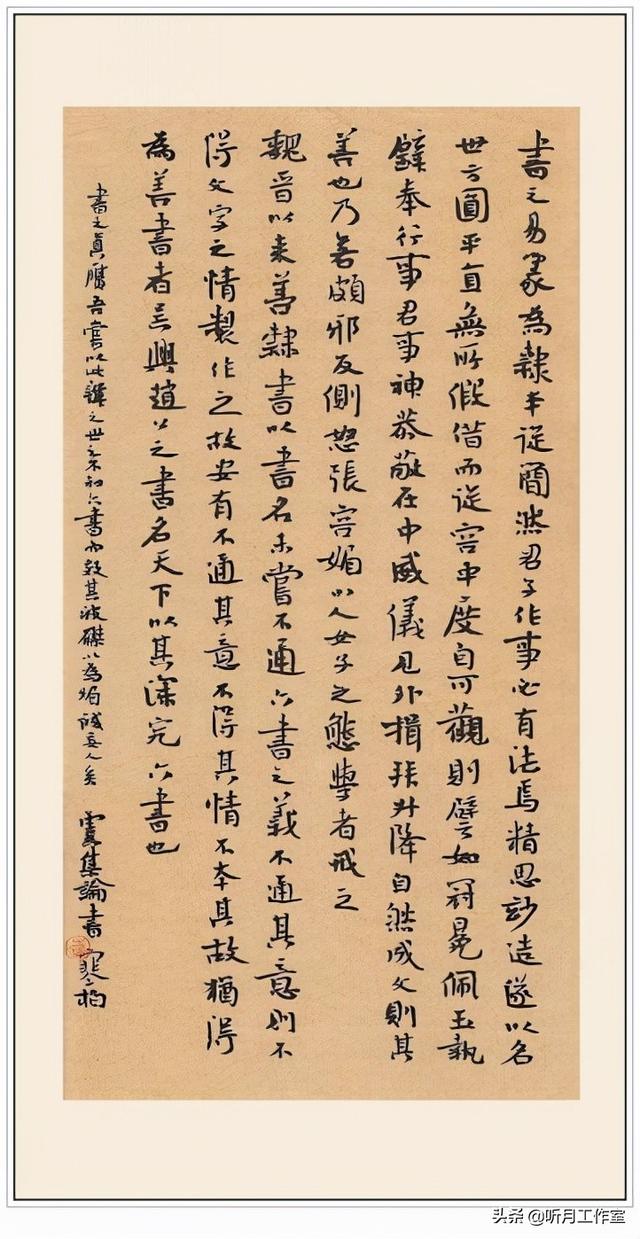 書之易篆為隸本從簡然君子作事必有法焉精思妙造遂以名
世方圓平直無所假借而從容中度自可觀則譬如冠冕佩玉執
璧奉行事君事神恭敬在中威儀見外揖拜升降自然成文則其
善也乃若頗邪反側怒張容媚以人女子之態學者戒之
魏晉以来善隸書以書名未嘗不通六書之義不通其意則不
得文字之情製作之故安有不通其意不得其情不本其故猶得
為善書者吳興趙公之書名天下以其深究六書也
書之真贋吾嘗以此辨之世之不知六書而效其波磔以為媚誠妄人矣
虞集論書
頭条 @听月工作室